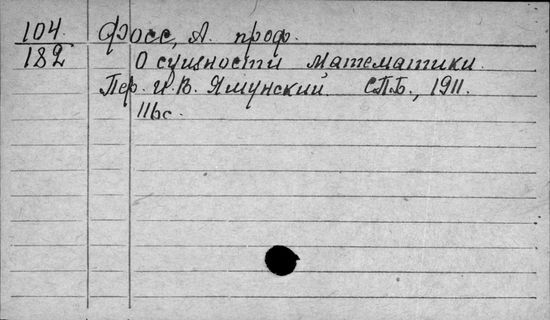 104. Фосс, А. проф.
182 О сущности математики.
Пер. И.В. Ямунский. СПБ., 1911.
116с.